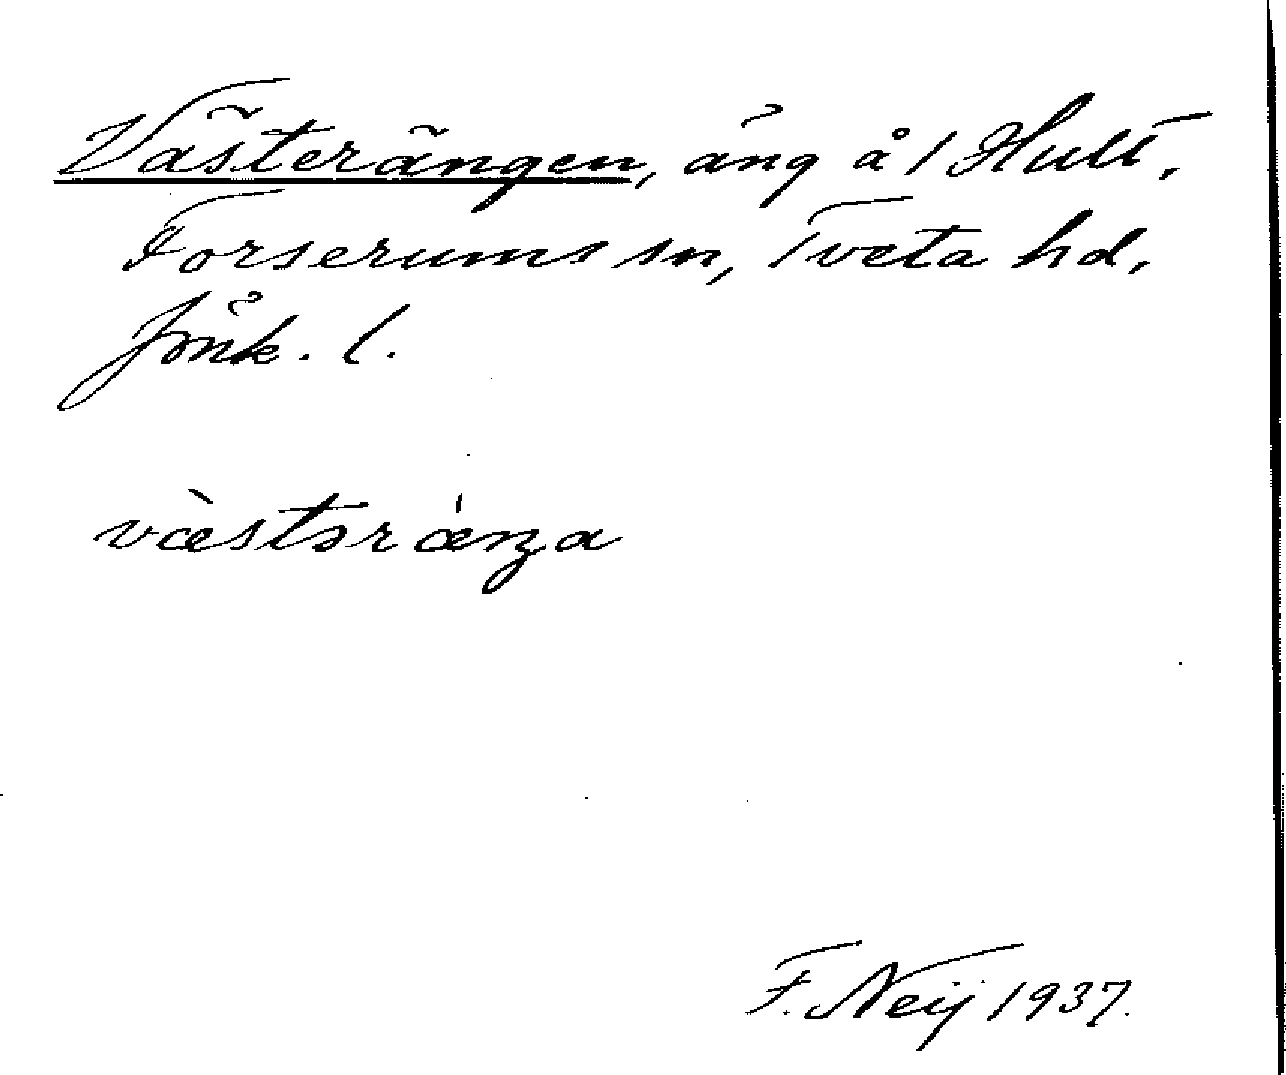 Västerängen, äng å 1 Hult,
Forserums sn, Tveta hd,
Jönk. l.
væ̀stərǽŋa
F. Neij 1937.